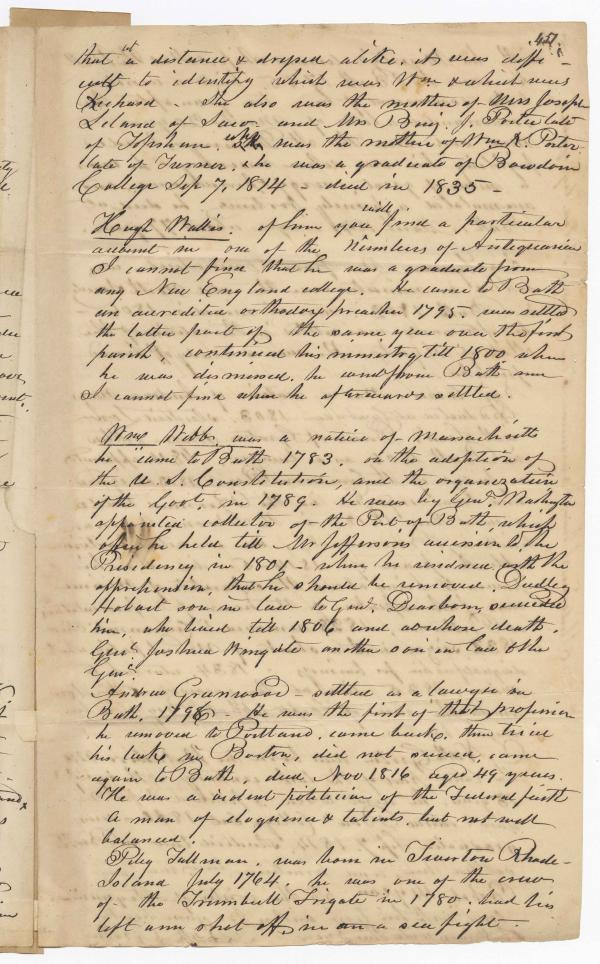 457.
that at a distance & dressed alike, it was diffi-
cult to identify which was Wm & which was
Richard - She also was the mother of Mrs Joseph
Leland of Saco, and Mrs Benj. J. Porter late
of Topsham. who was the mother of Wm K. Porter
late of Turner, & he was a graduate of Bowdoin
College Sep 7, 1814 - died in 1835 -
Hugh Wallis. of him you will find a particular
account in one of the Numbers of Antiquarian
I cannot find that he was a graduate from
any New England college. He came to Bath
an accredited orthodox preacher 1795. was settled
the latter part of the same year over the first
parish, continued his ministry till 1800 when
he was dismissed. he went from Bath and
I cannot find where he afterwards settled.
Wm Webb. was a native of Massachusetts
he came to Bath 1783. on the adoption of
the U. S. Constitution, and the organization
of the Govt. in 1789. He was by Genl. Washington
appointed collector of the Port of Bath, which
office he held till Mr Jeffersons accession to the
Presidency in 1801 - when he resigned with the
apprehension, that he should be removed. Dudley
Hobart son in law to Genl. Dearborn, succeeded
him, who lived till 1806 and at whose death,
Genl. Joshua Wingate another son in law of the
Genl.
Andrew Greenwood - settled as a lawyer in
Bath, 1796 - He was the first of that profession
he removed to Portland, came back, then tried
his luck in Boston, did not succeed, came
again to Bath, died Nov 1816 aged 49 years.
He was a ardent politician of the Federal faith
a man of eloquence & talents, but not well
balanced.
Peleg Tallman, was born in Tiverton Rhode-
Island July 1764. he was one of the crew
of the Trumbull Frigate in 1780. had his
left arm shot off, in a sea fight.